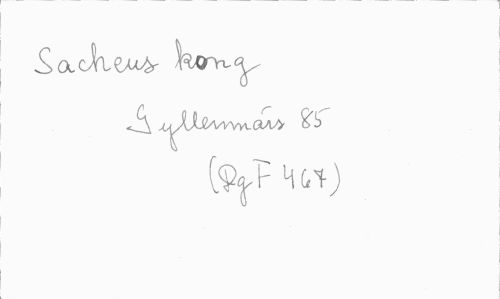 Sacheus kong
Gyllenmärs 85
(DgF 467)